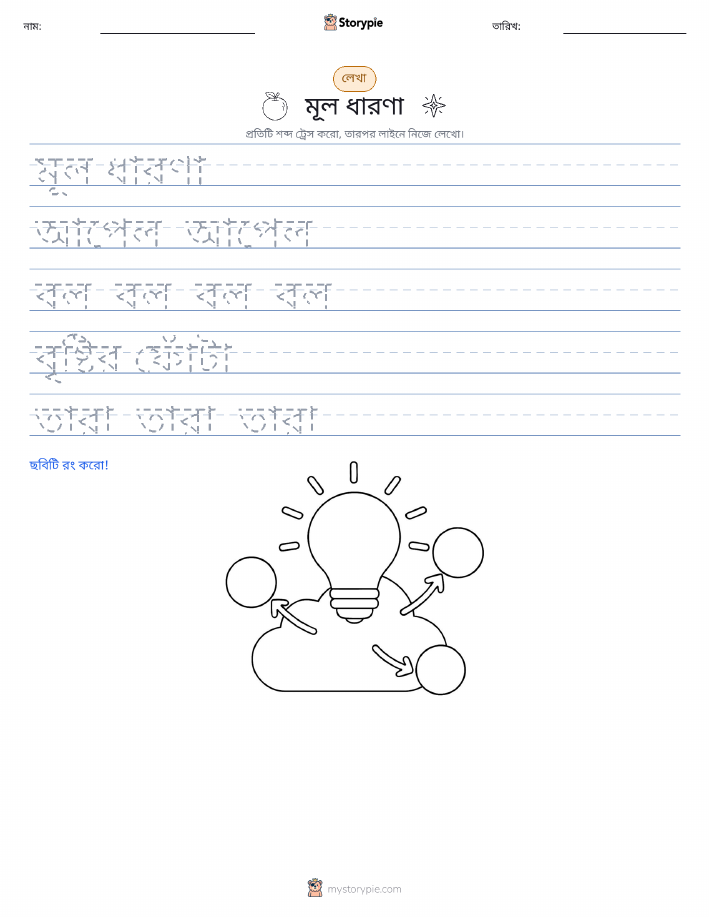 নাম:
Storypie
তারিখ:
লেখা
মূল ধারণা
প্রতিটি শব্দ ট্রেস করো, তারপর লাইনে নিজে লেখো।
মূল ধারণা
আপেল আপেল
বল বল বল বল
বৃষ্টির ফোঁটা
তারা তারা তারা
ছবিটি রং করো!
mystorypie.com